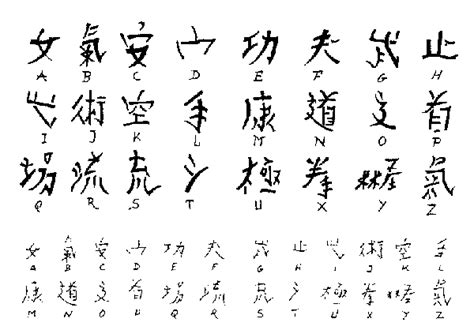 女 氣 安 宀 功 夫 武 止
A B C D E F G H
弋 術 空 手 康 道 首
I J K L M N O P
場 流 㐬 極 拳 氣
Q R S T U X Y Z
女 氣 安 宀 功 夫 武 止 弋 術 空 手
A B C D E F G H I J K L
康 道 首 場 流 㐬 極 拳 氣
M N O P Q R S T U X Y Z